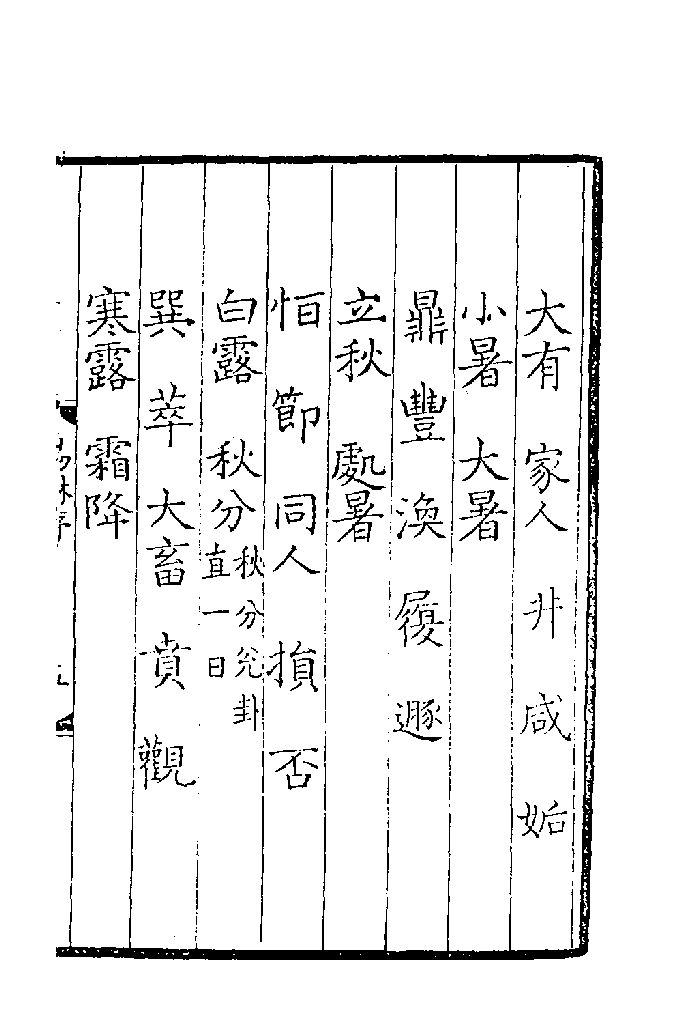 大有　家人　井　咸　姤
小暑　大暑
鼎　豐　渙　履　遯
立秋　處暑
恒　節　同人　損　否
白露　秋分秋分兊卦直一日
巽　萃　大畜　賁　觀
寒露　霜降
易林序